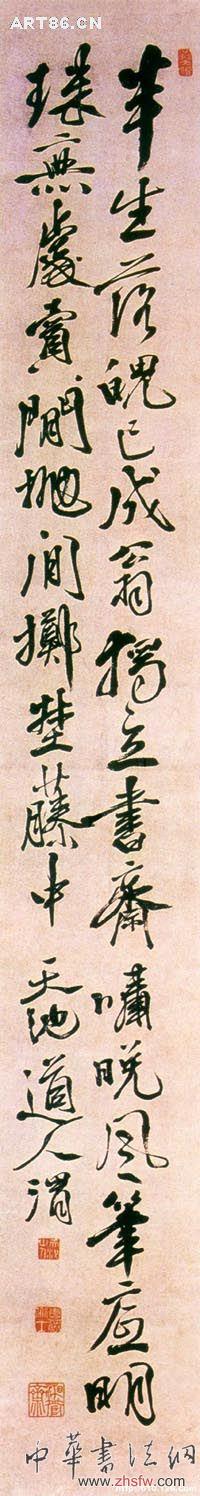 ART86.CN
半生落魄已成翁獨立書齋嘯晚風筆底明
珠無處賣閒拋閒擲埜藤中 天池道人渭
中華書法網
www.zhsfw.com